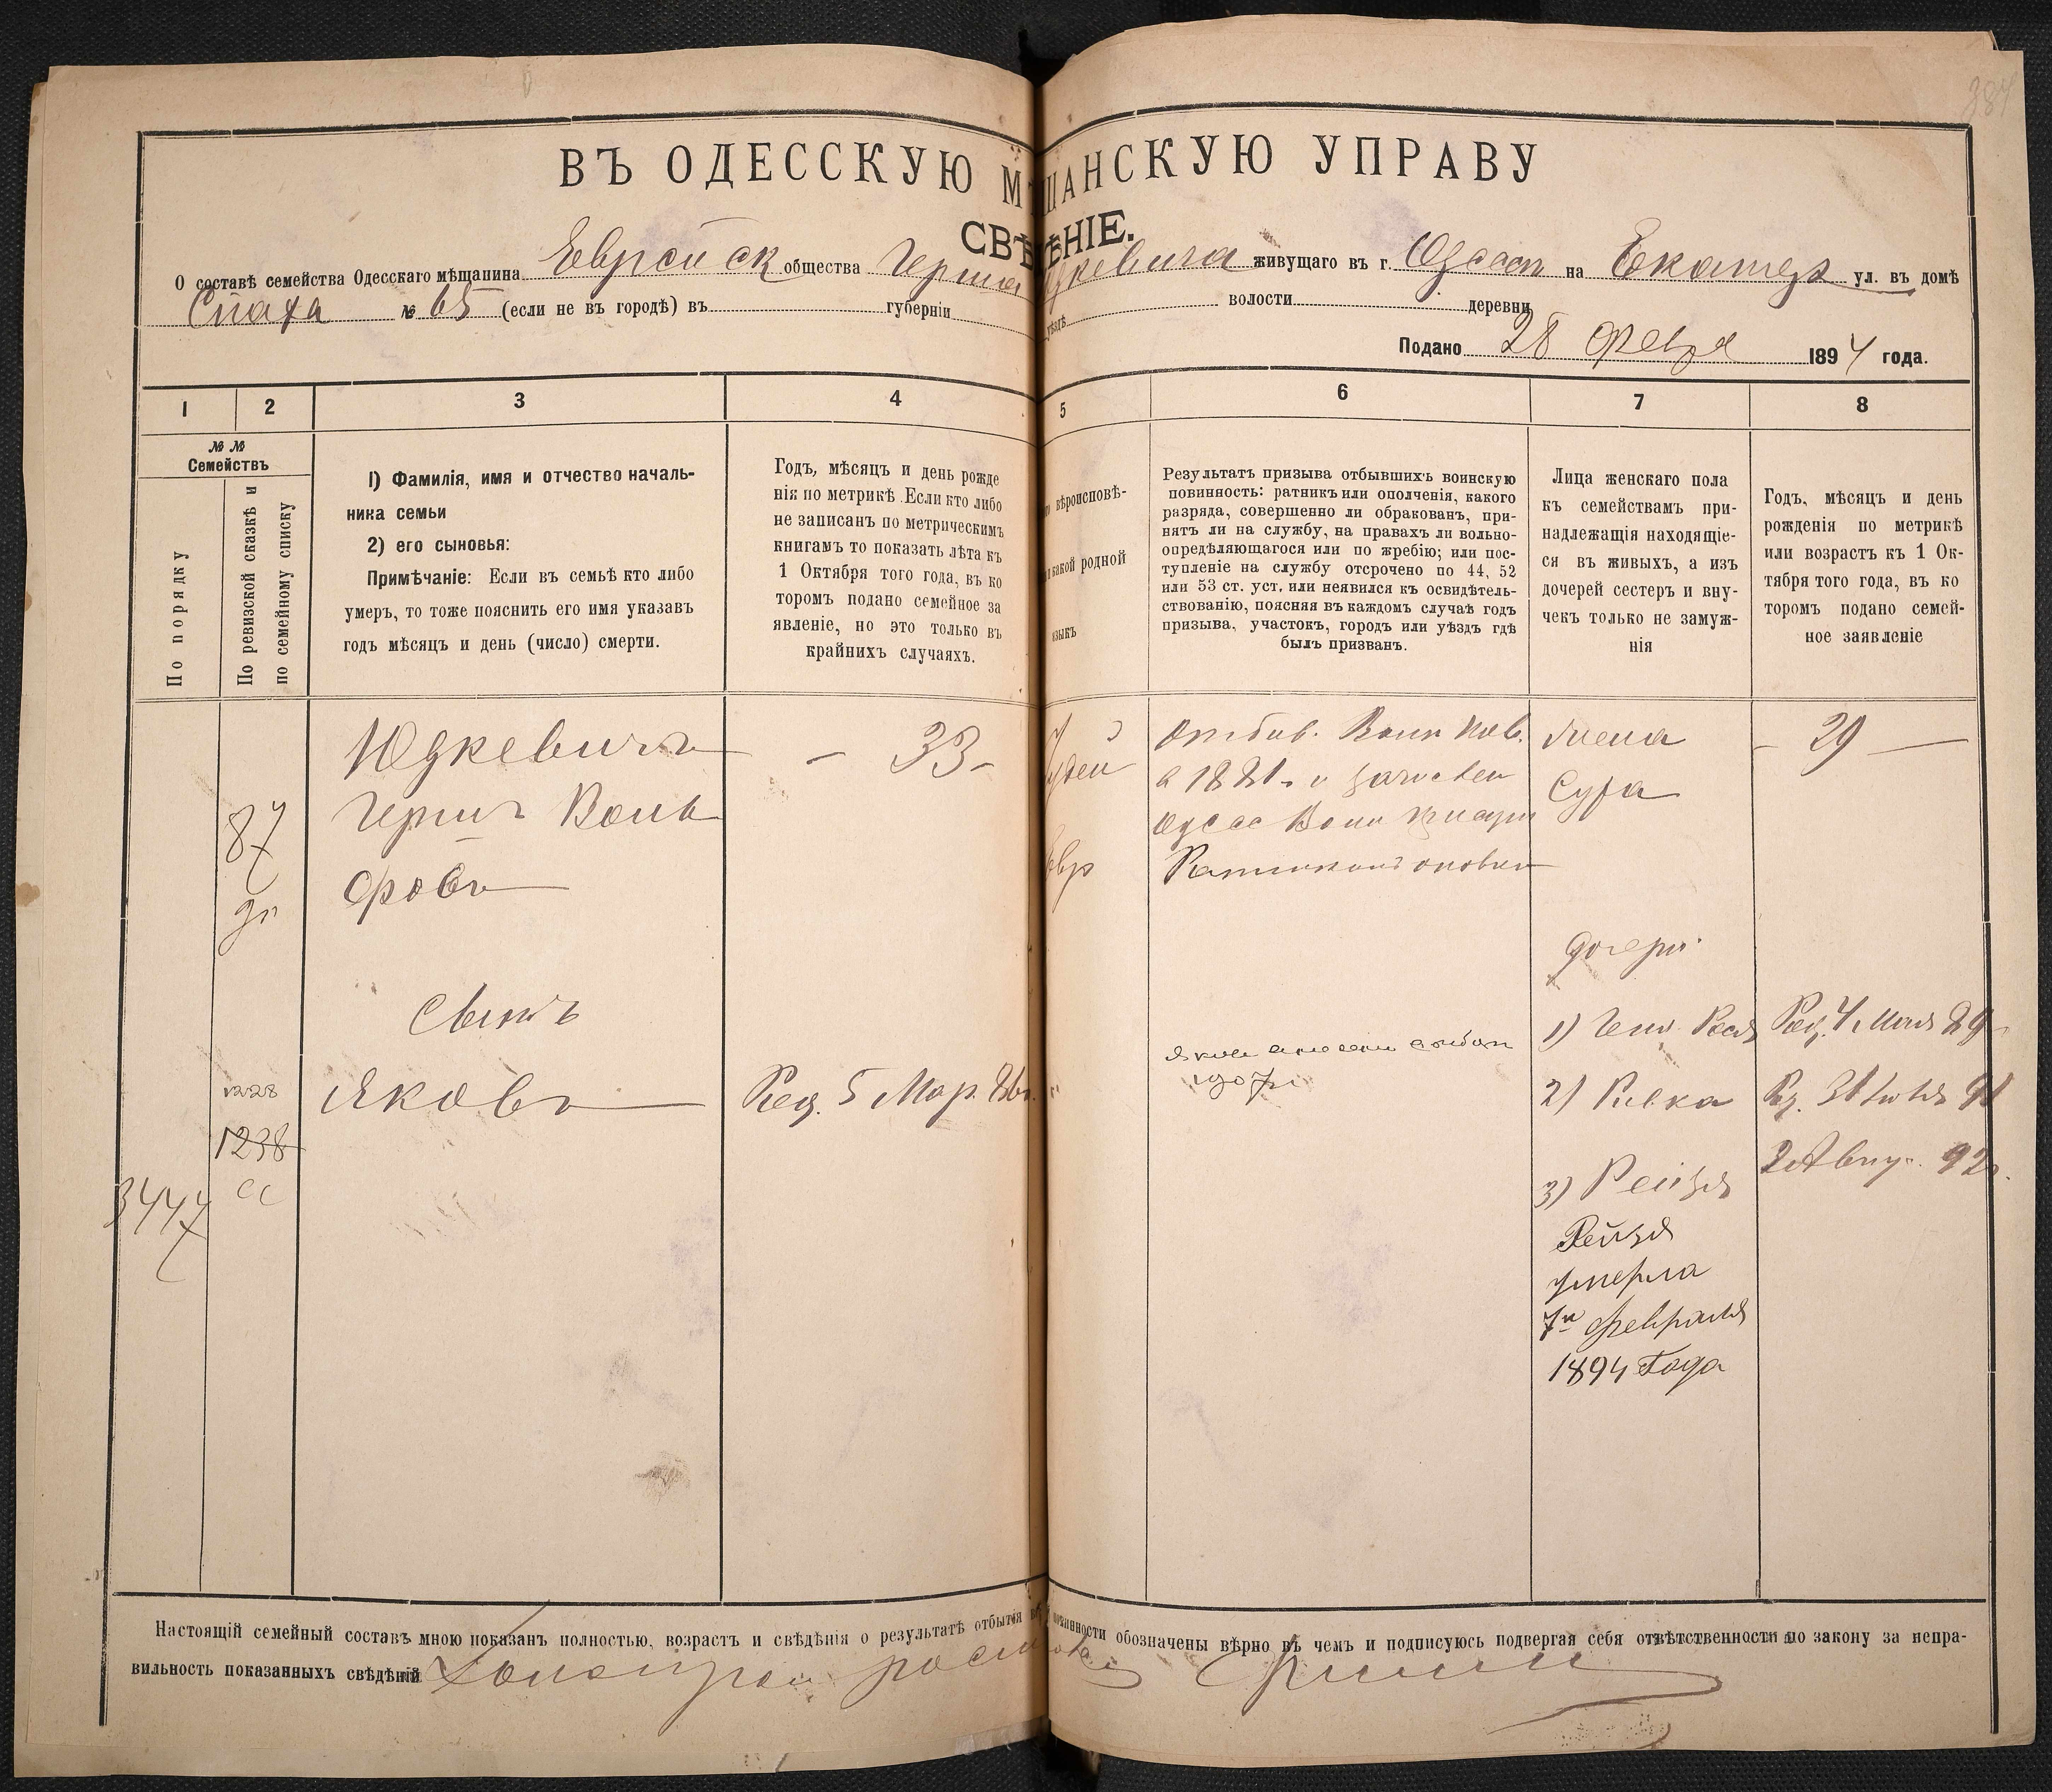 ВЪ ОДЕССКУЮ МѢЩАНСКУЮ УПРАВУ
СВѢДѢНІЕ.
О составѣ семейства Одесскаго мѣщанина Еврейск общества Герша Юдкевича живущаго въ г. Одессѣ на Екатер ул. въ домѣ
№ 65 (если не въ городѣ) въ губерніи уѣздѣ волости деревни
Подано 28 Февр 1894 года.
1 2 3 4 5 6 7 8
№ №
Семействъ
По порядку
По ревизской сказкѣ и
по семейному списку
1) Фамилія, имя и отчество началь-
ника семьи
2) его сыновья:
Примѣчаніе: Если въ семьѣ кто либо
умеръ, то тоже пояснить его имя указавъ
годъ мѣсяцъ и день (число) смерти.
Годъ, мѣсяцъ и день рожде
нія по метрикѣ. Если кто либо
не записанъ по метрическимъ
книгамъ то показать лѣта къ
1 Октября того года, въ ко
торомъ подано семейное за
явленіе, но это только въ
крайнихъ случаяхъ.
вѣроисповѣ-
какой родной
языкъ
Результатъ призыва отбывшихъ воинскую
повинность: ратникъ или ополченія, какого
разряда, совершенно ли обракованъ, при-
нятъ ли на службу, на правахъ ли вольно-
опредѣляющагося или по жребію; или пос-
тупленіе на службу отсрочено по 44, 52
или 53 ст. уст. или неявился къ освидѣтель-
ствованію, поясняя въ каждомъ случаѣ годъ
призыва, участокъ, городъ или уѣздъ гдѣ
былъ призванъ.
Лица женскаго пола
къ семействамъ при-
надлежащія находящіе-
ся въ живыхъ, а изъ
дочерей сестеръ и вну-
чекъ только не замуж-
нія
Годъ, мѣсяцъ и день
рожденія по метрикѣ
или возрастъ къ 1 Ок-
тября того года, въ ко
торомъ подано семей-
ное заявленіе
Юдкевичъ
Гершъ Воль
фовъ
87
- 33 -
Іудей
Евр
Отбыв. Воин пов.
в 1881 г. и зачислен
Одесс Воин
Ратником ополч
Жена
Сура
- 29 -
Сынъ
1228
1238
сс
3447
Яковъ
Род. 5 Мар. 86 г.
1907 г
дочери
1) Род. 4 Мая 89
2) Ривка Рд. 31 Іюля 91
3) Рейзя 2 Авгу. 92 г.
Рейзя
умерла
7го Февраля
1894 Года
Настоящій семейный составъ мною показанъ полностью, возрастъ и свѣдѣнія о результатѣ отбытія повинности обозначены вѣрно въ чемъ и подписуюсь подвергая себя отвѣтственности по закону за непра-
вильность показанныхъ свѣдѣній